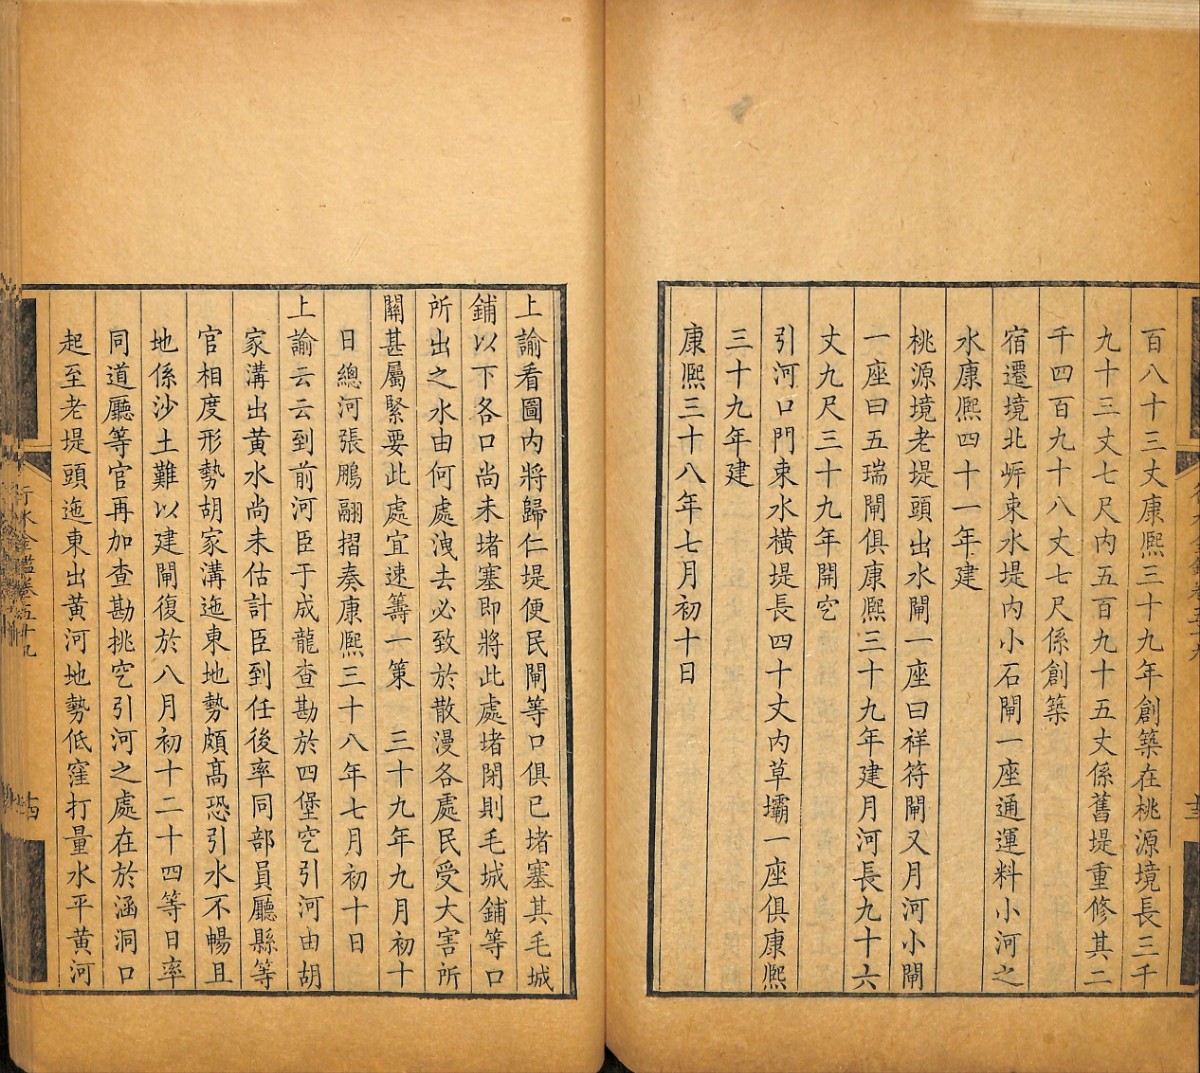 百八十三丈康熙三十九年創築在桃源境長三千
九十三丈七尺內五百九十五丈係舊堤重修其二
千四百九十八丈七尺係創築
宿遷境北岍束水堤內小石閘一座通運料小河之
水康熙四十一年建
桃源境老堤頭出水閘一座曰祥符閘又月河小閘
一座曰五瑞閘俱康熙三十九年建月河長九十六
丈九尺三十九年開空
引河口門束水橫堤長四十丈內草壩一座俱康熙
三十九年建
康熙三十八年七月初十日
上諭看圖內將歸仁堤便民閘等口俱已堵塞其毛城
鋪以下各口尚未堵塞即將此處堵閉則毛城鋪等口
所出之水由何處洩去必致於散漫各處民受大害所
關甚屬緊要此處宜速籌一策 三十九年九月初十
日總河張鵬翮摺奏康熙三十八年七月初十日
上諭云云到前河臣于成龍查勘於四堡空引河由胡
家溝出黃水尚未估計臣到任後率同部員廳縣等
官相度形勢胡家溝迤東地勢頗高恐引水不暢且
地係沙土難以建閘復於八月初十二十四等日率
同道廳等官再加查勘挑空引河之處在於涵洞口
起至老堤頭迤東出黃河地勢低窪打量水平黃河
行水金鑑卷五十九
十四